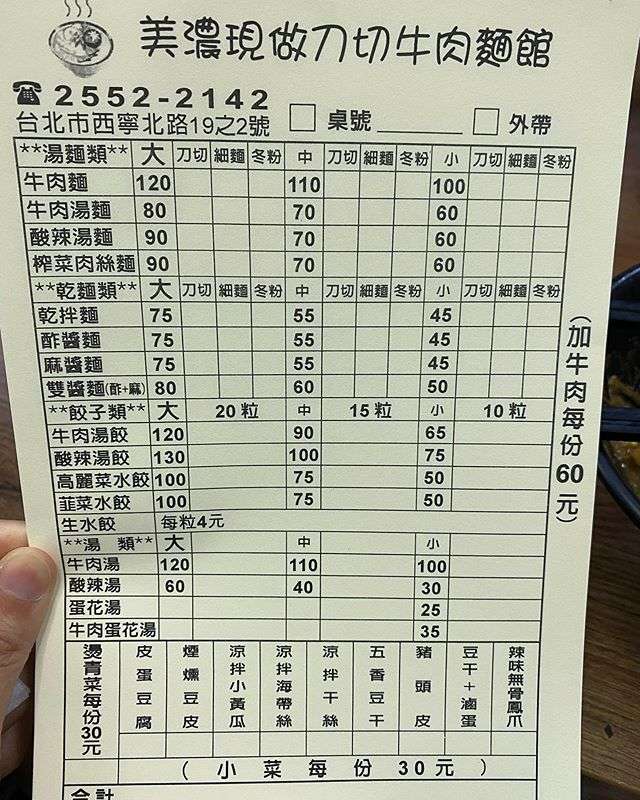 美濃現做刀切牛肉麵館
☎2552-2142
台北市西寧北路19之2號 □ 桌號______ □ 外帶
**湯麵類** 大 刀切 細麵 冬粉 中 刀切 細麵 冬粉 小 刀切 細麵 冬粉
牛肉麵 120 110 100
牛肉湯麵 80 70 60
酸辣湯麵 90 70 60
榨菜肉絲麵 90 70 60
**乾麵類** 大 刀切 細麵 冬粉 中 刀切 細麵 冬粉 小 刀切 細麵 冬粉
乾拌麵 75 55 45
酢醬麵 75 55 45
麻醬麵 75 55 45
雙醬麵(酢+麻) 80 60 50
(加牛肉每份60元)
**餃子類** 大 20粒 中 15粒 小 10粒
牛肉湯餃 120 90 65
酸辣湯餃 130 100 75
高麗菜水餃 100 75 50
韮菜水餃 100 75 50
生水餃 每粒4元
**湯 類** 大 中 小
牛肉湯 120 110 100
酸辣湯 60 40 30
蛋花湯 25
牛肉蛋花湯 35
燙青菜每份30元
皮蛋豆腐
煙燻豆皮
涼拌小黃瓜
涼拌海帶絲
涼拌干絲
五香豆干
豬頭皮
豆干+滷蛋
辣味無骨鳳爪
(小菜每份30元)
合計